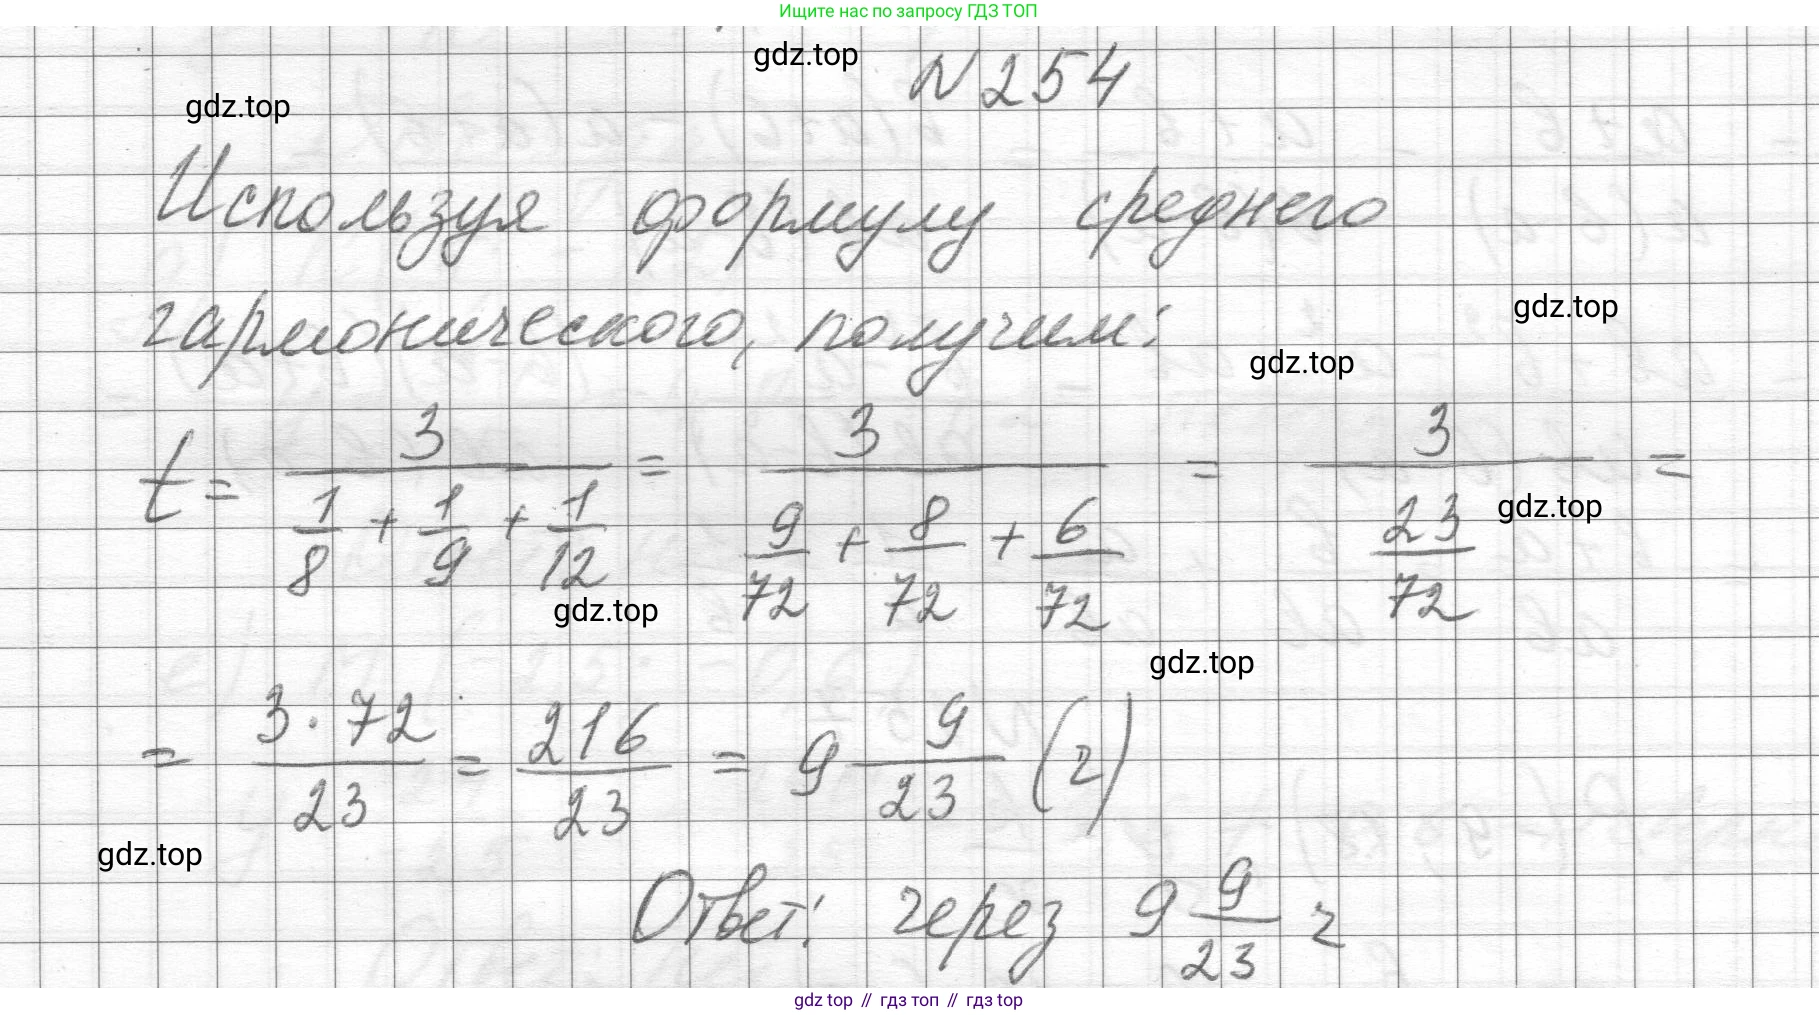 Ищите нас по запросу ГДЗ ТОП
gdz.top
N 254
gdz.top
Используя формулу среднего
гармонического, получим:
gdz.top
gdz.top
t = 3/(1/8 + 1/9 + 1/12) = 3/(9/72 + 8/72 + 6/72) = 3/(23/72) =
gdz.top
gdz.top
gdz.top
= 3·72/23 = 216/23 = 9 9/23 (г)
gdz.top
Ответ: через 9 9/23 г
gdz top // гдз топ // гдз top